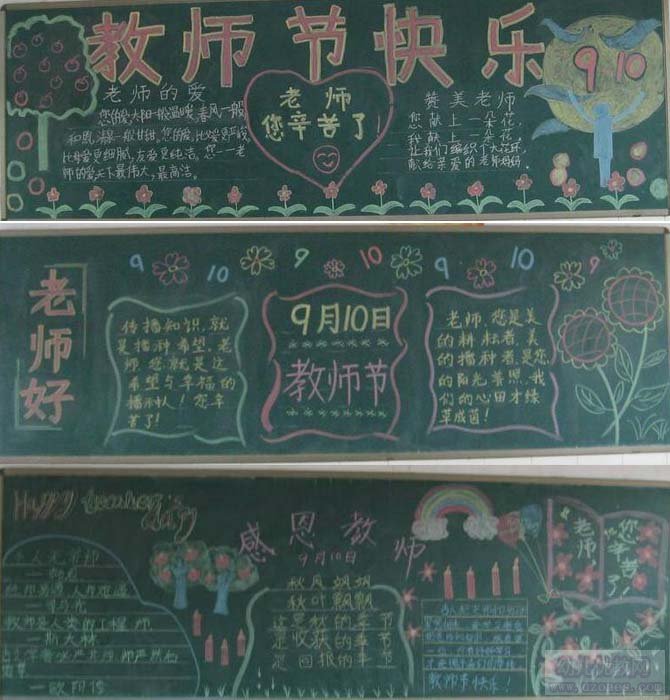 教师节快乐
9 10
老师的爱
您的爱,太阳一般温暖,春风一般
和煦,清泉一般甘甜,您的爱,比父爱更严峻,
比母爱更细腻,友爱更纯洁。您一老
师的爱,天下最伟大,最高洁。
老师
您辛苦了!
赞美老师
您献上一朵花
我献上一朵花,
让我们编织个大花环,
献给亲爱的老师妈妈。
9 10 9 10 9 10 9
老师好
传播知识,就
是播种希望,老
师您就是这
希望与幸福的
播种人!您辛
苦了!
9月10日
教师节
老师,您是美
的耕耘者,美
的播种者,是您
的阳光普照,我
们的心田才绿
草成茵!
Happy teacher's day
感恩教师
9月10日
一斯大林
一欧阳修
秋风飒飒
秋叶飘飘
这是秋的季节
是收获的季节
是回报的季节
教师节快乐!
老师,
您辛苦了!
幼儿教育网